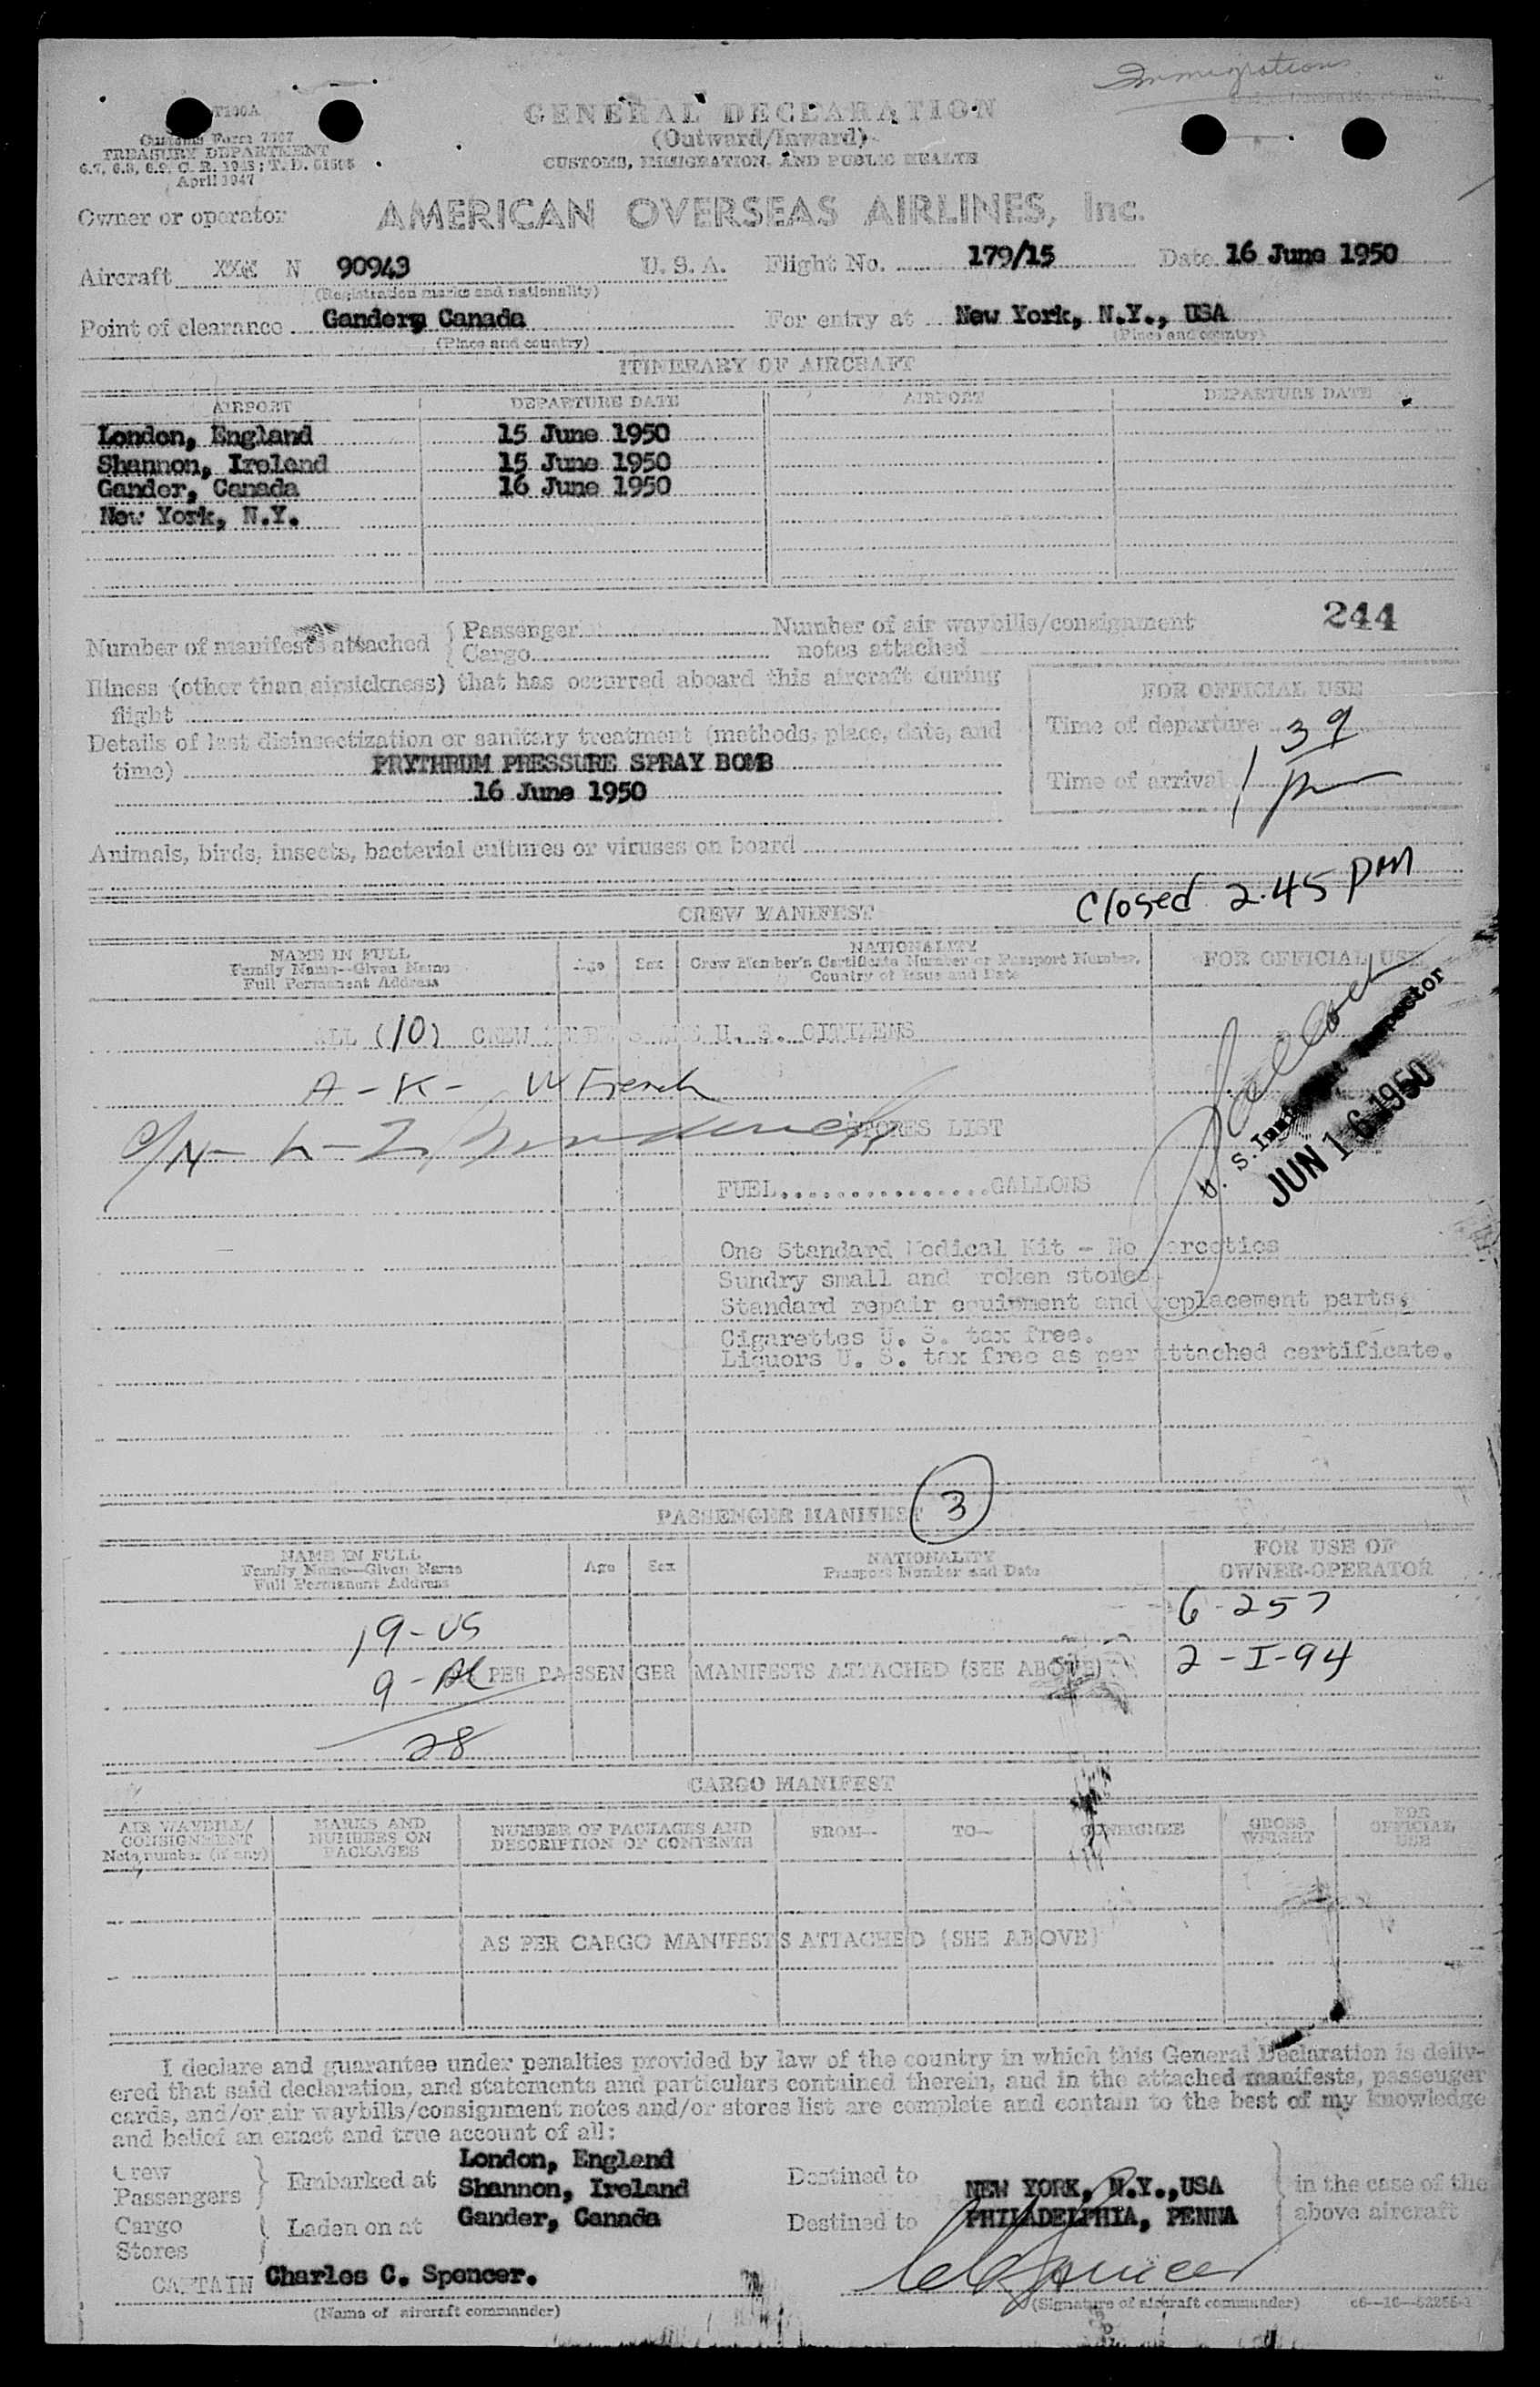 Immigration
T100A
Customs Form 7507
TREASURY DEPARTMENT
April 1947
GENERAL DECLARATION
(Outward/Inward)
CUSTOMS, IMMIGRATION, AND PUBLIC HEALTH
Owner or operator AMERICAN OVERSEAS AIRLINES, Inc.
Aircraft XXX N 90943 U. S. A. Flight No. 179/15 Date 16 June 1950
(Registration marks and nationality)
Point of clearance Gander, Canada For entry at New York, N.Y., USA
(Place and country) (Place and country)
ITINERARY OF AIRCRAFT
AIRPORT DEPARTURE DATE AIRPORT DEPARTURE DATE
London, England 15 June 1950
Shannon, Ireland 15 June 1950
Gander, Canada 16 June 1950
New York, N.Y.
244
Number of manifests attached { Passenger Number of air waybills/consignment
Cargo notes attached
Illness (other than airsickness) that has occurred aboard this aircraft during
flight
FOR OFFICIAL USE
Details of last disinsectization or sanitary treatment (methods, place, date, and
time) PRYTHRUM PRESSURE SPRAY BOMB
16 June 1950
Time of departure
Time of arrival
1 39
pm
Animals, birds, insects, bacterial cultures or viruses on board
Closed 2.45 PM
CREW MANIFEST
NAME IN FULL
Family Name—Given Name
Full Permanent Address
Age Sex
NATIONALITY
Crew Member's Certificate Number or Passport Number,
Country of Issue and Date
FOR OFFICIAL USE
ALL (10) CREW MEMBERS ARE U. S. CITIZENS
A - K - W French
L - Z
STORES LIST
U. S. Immigrant Inspector
JUN 16 1950
FUEL................GALLONS
One Standard Medical Kit - No narcotics
Sundry small and roken stores
Standard repair equipment and replacement parts.
Cigarettes U. S. tax free.
Liquors U. S. tax free as per attached certificate.
PASSENGER MANIFEST 3
NAME IN FULL
Family Name—Given Name
Full Permanent Address
Age Sex
NATIONALITY
Passport Number and Date
FOR USE OF
OWNER-OPERATOR
6-257
19-US
9-Al PER PASSENGER MANIFESTS ATTACHED (SEE ABOVE) 2-I-94
28
CARGO MANIFEST
AIR WAYBILL/
CONSIGNMENT
Note, number (if any)
MARKS AND
NUMBERS ON
PACKAGES
NUMBER OF PACKAGES AND
DESCRIPTION OF CONTENTS
FROM— TO— CONSIGNEE
GROSS
WEIGHT
FOR
OFFICIAL
USE
AS PER CARGO MANIFESTS ATTACHED (SEE ABOVE)
I declare and guarantee under penalties provided by law of the country in which this General Declaration is deliv-
ered that said declaration, and statements and particulars contained therein, and in the attached manifests, passenger
cards, and/or air waybills/consignment notes and/or stores list are complete and contain to the best of my knowledge
and belief an exact and true account of all:
Crew
Passengers } Embarked at
Cargo
Stores } Laden on at
London, England
Shannon, Ireland
Gander, Canada
Destined to NEW YORK, N.Y.,USA
Destined to PHILADELPHIA, PENNA
in the case of the
above aircraft
CAPTAIN Charles C. Spencer. CC Spencer
(Name of aircraft commander) (Signature of aircraft commander)